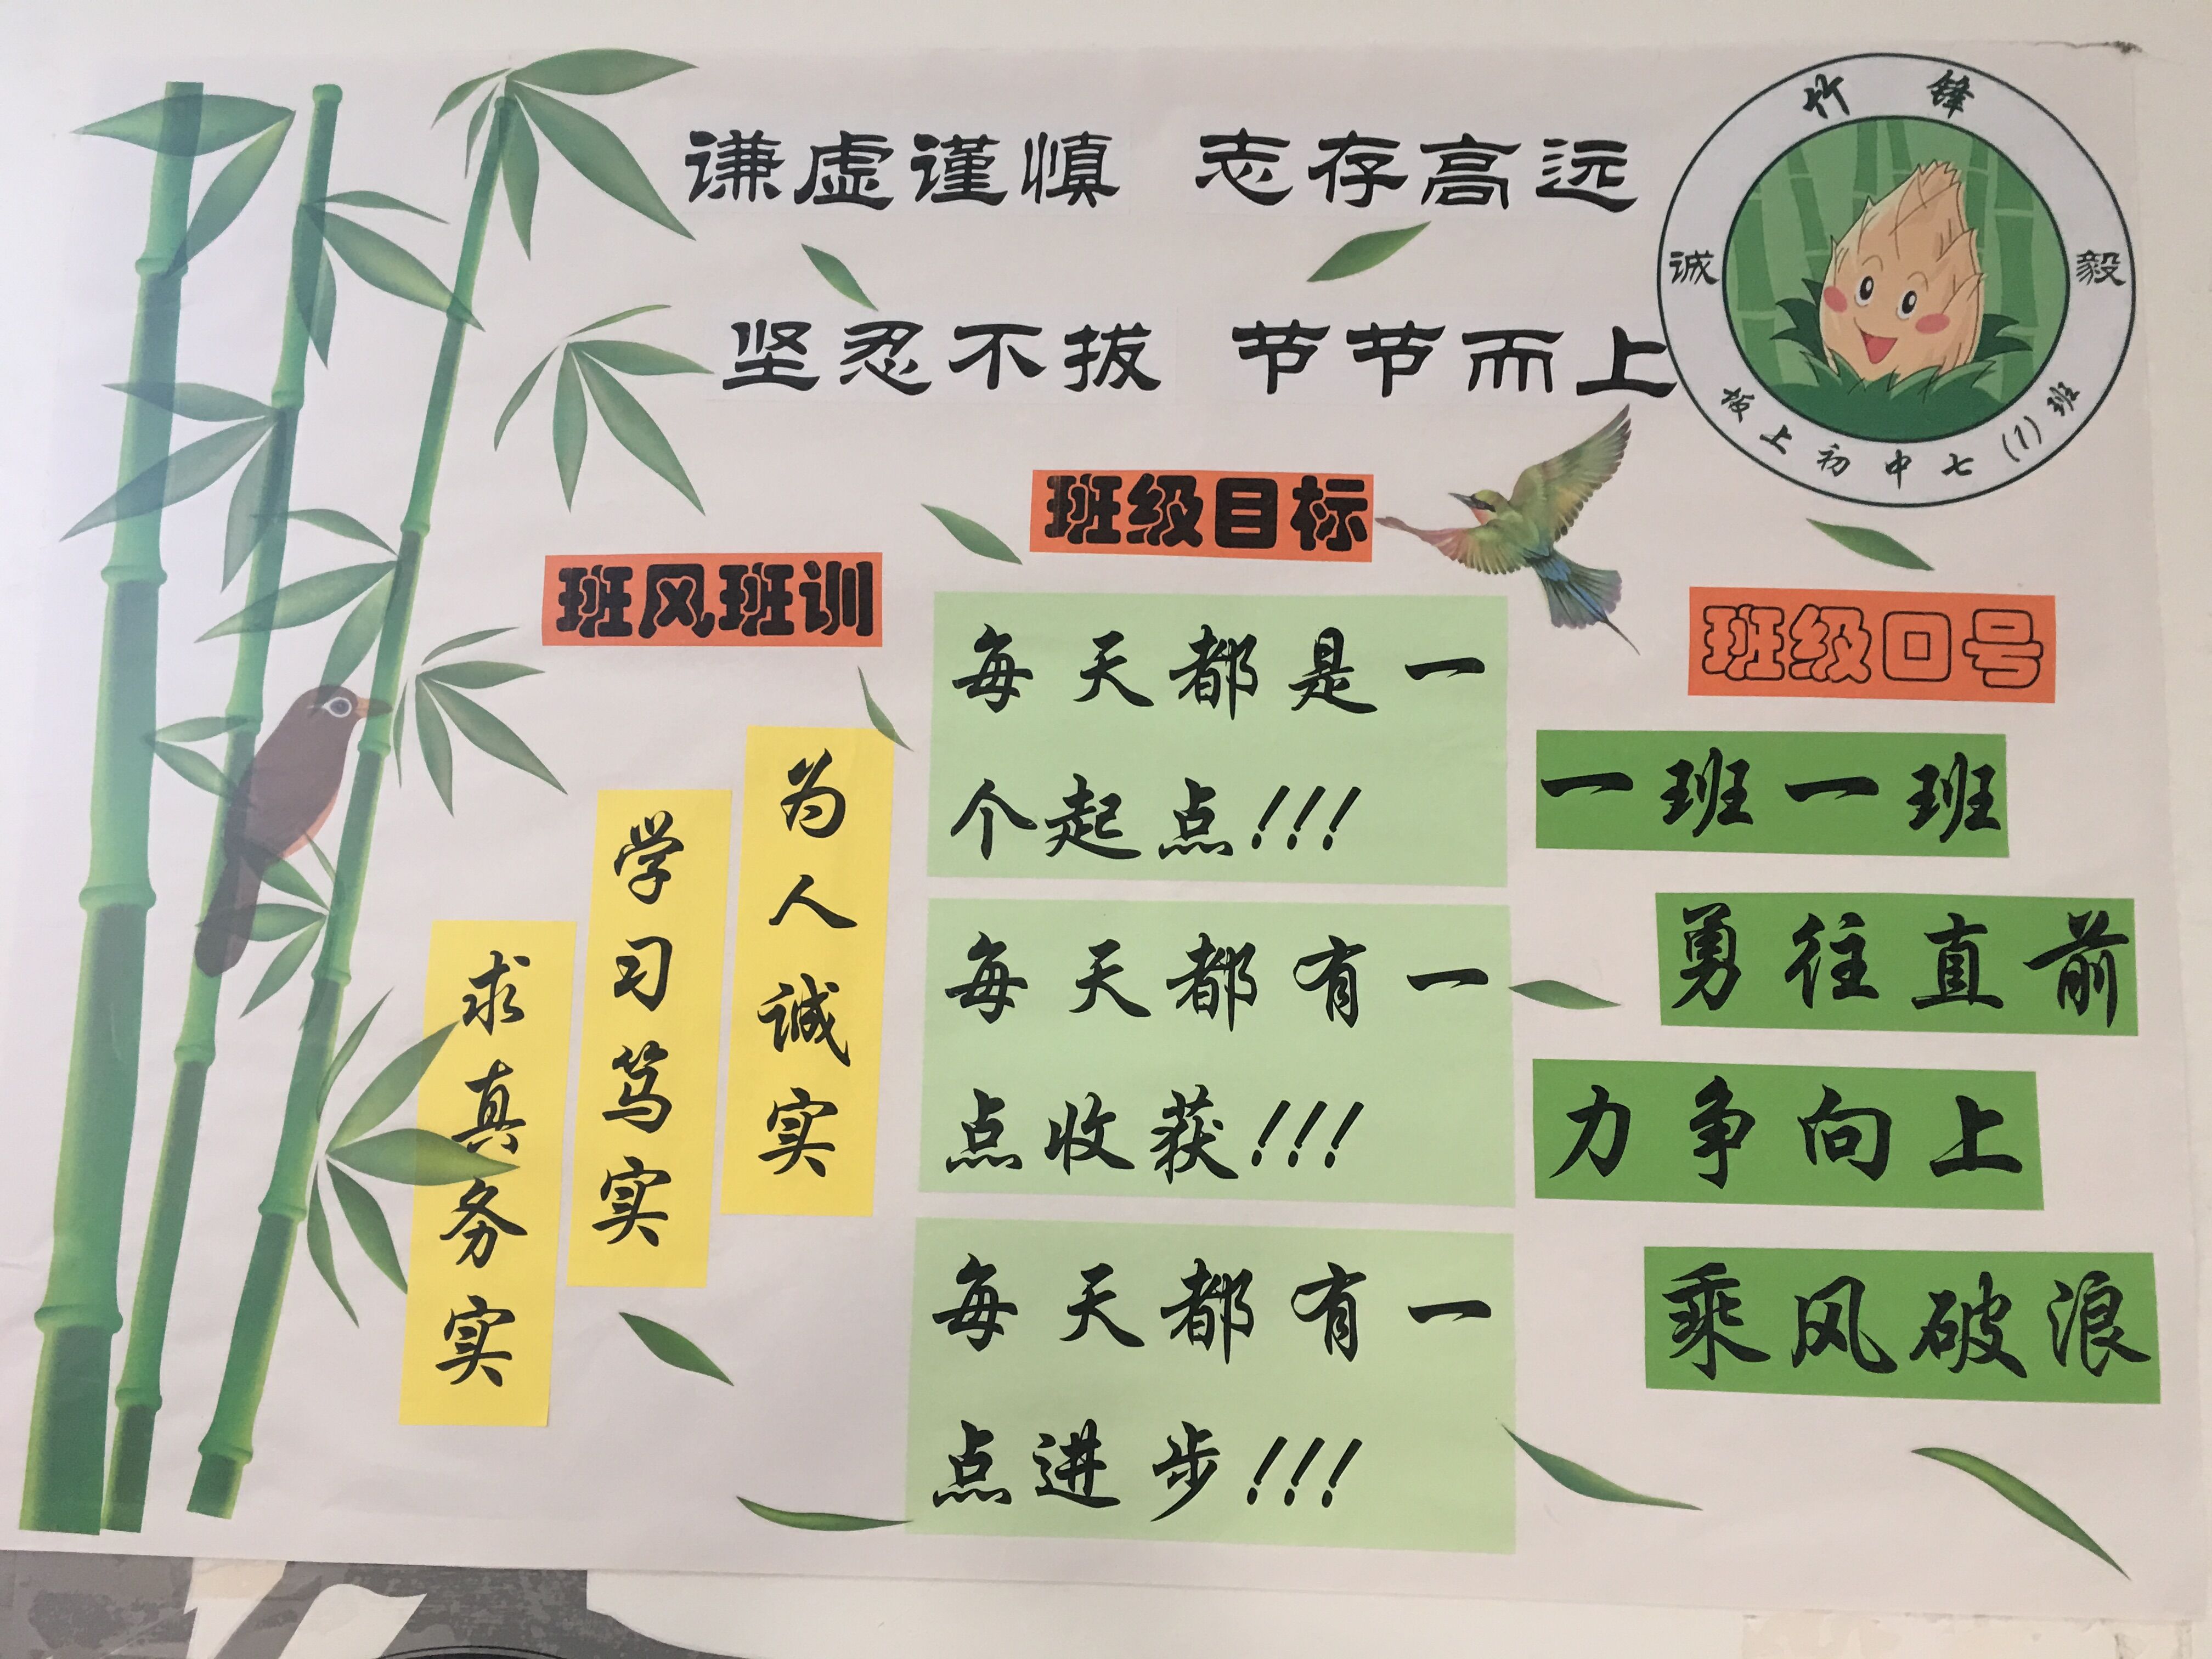 谦虚谨慎 志存高远
坚忍不拔 节节而上
竹 锋
诚
毅
上初中七(1)班
班级目标
每天都是一
个起点!!!
每天都有一
点收获!!!
每天都有一
点进步!!!
班风班训
为人诚实
学习笃实
求真务实
班级口号
一班一班
勇往直前
力争向上
乘风破浪